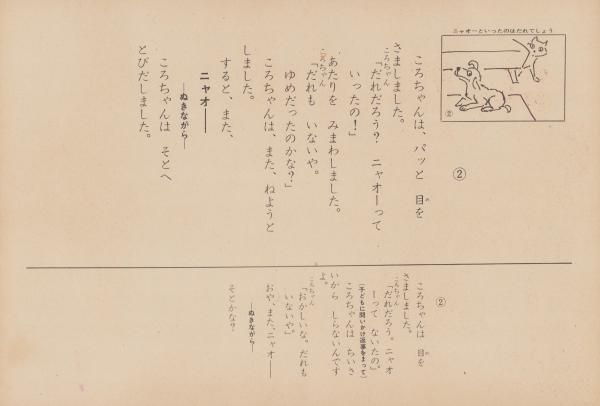 ニャオーといったのはだれでしょう
②
②
ころちゃんは、パッと 目を
め
さましました。
ころちゃん
「だれだろう? ニャオーって
いったの!」
あたりを みまわしました。
ころちゃん
「だれも いないや。
ゆめだったのかな?」
ころちゃんは、また、ねようと
しました。
すると、また、
ニャオ――
―ぬきながら―
ころちゃんは そとへ
とびだしました。
②
ころちゃんは 目を
め
さましました。
ころちゃん
「だれだろう。ニャオ
ーって ないたの」。
(子どもに問いかけ返事をまって)
ころちゃんは ちいさ
いから しらないんです
よ。
ころちゃん
「おかしいな。だれも
いないや」。
おや、また、ニャオ――
―ぬきながら―
そとかな?